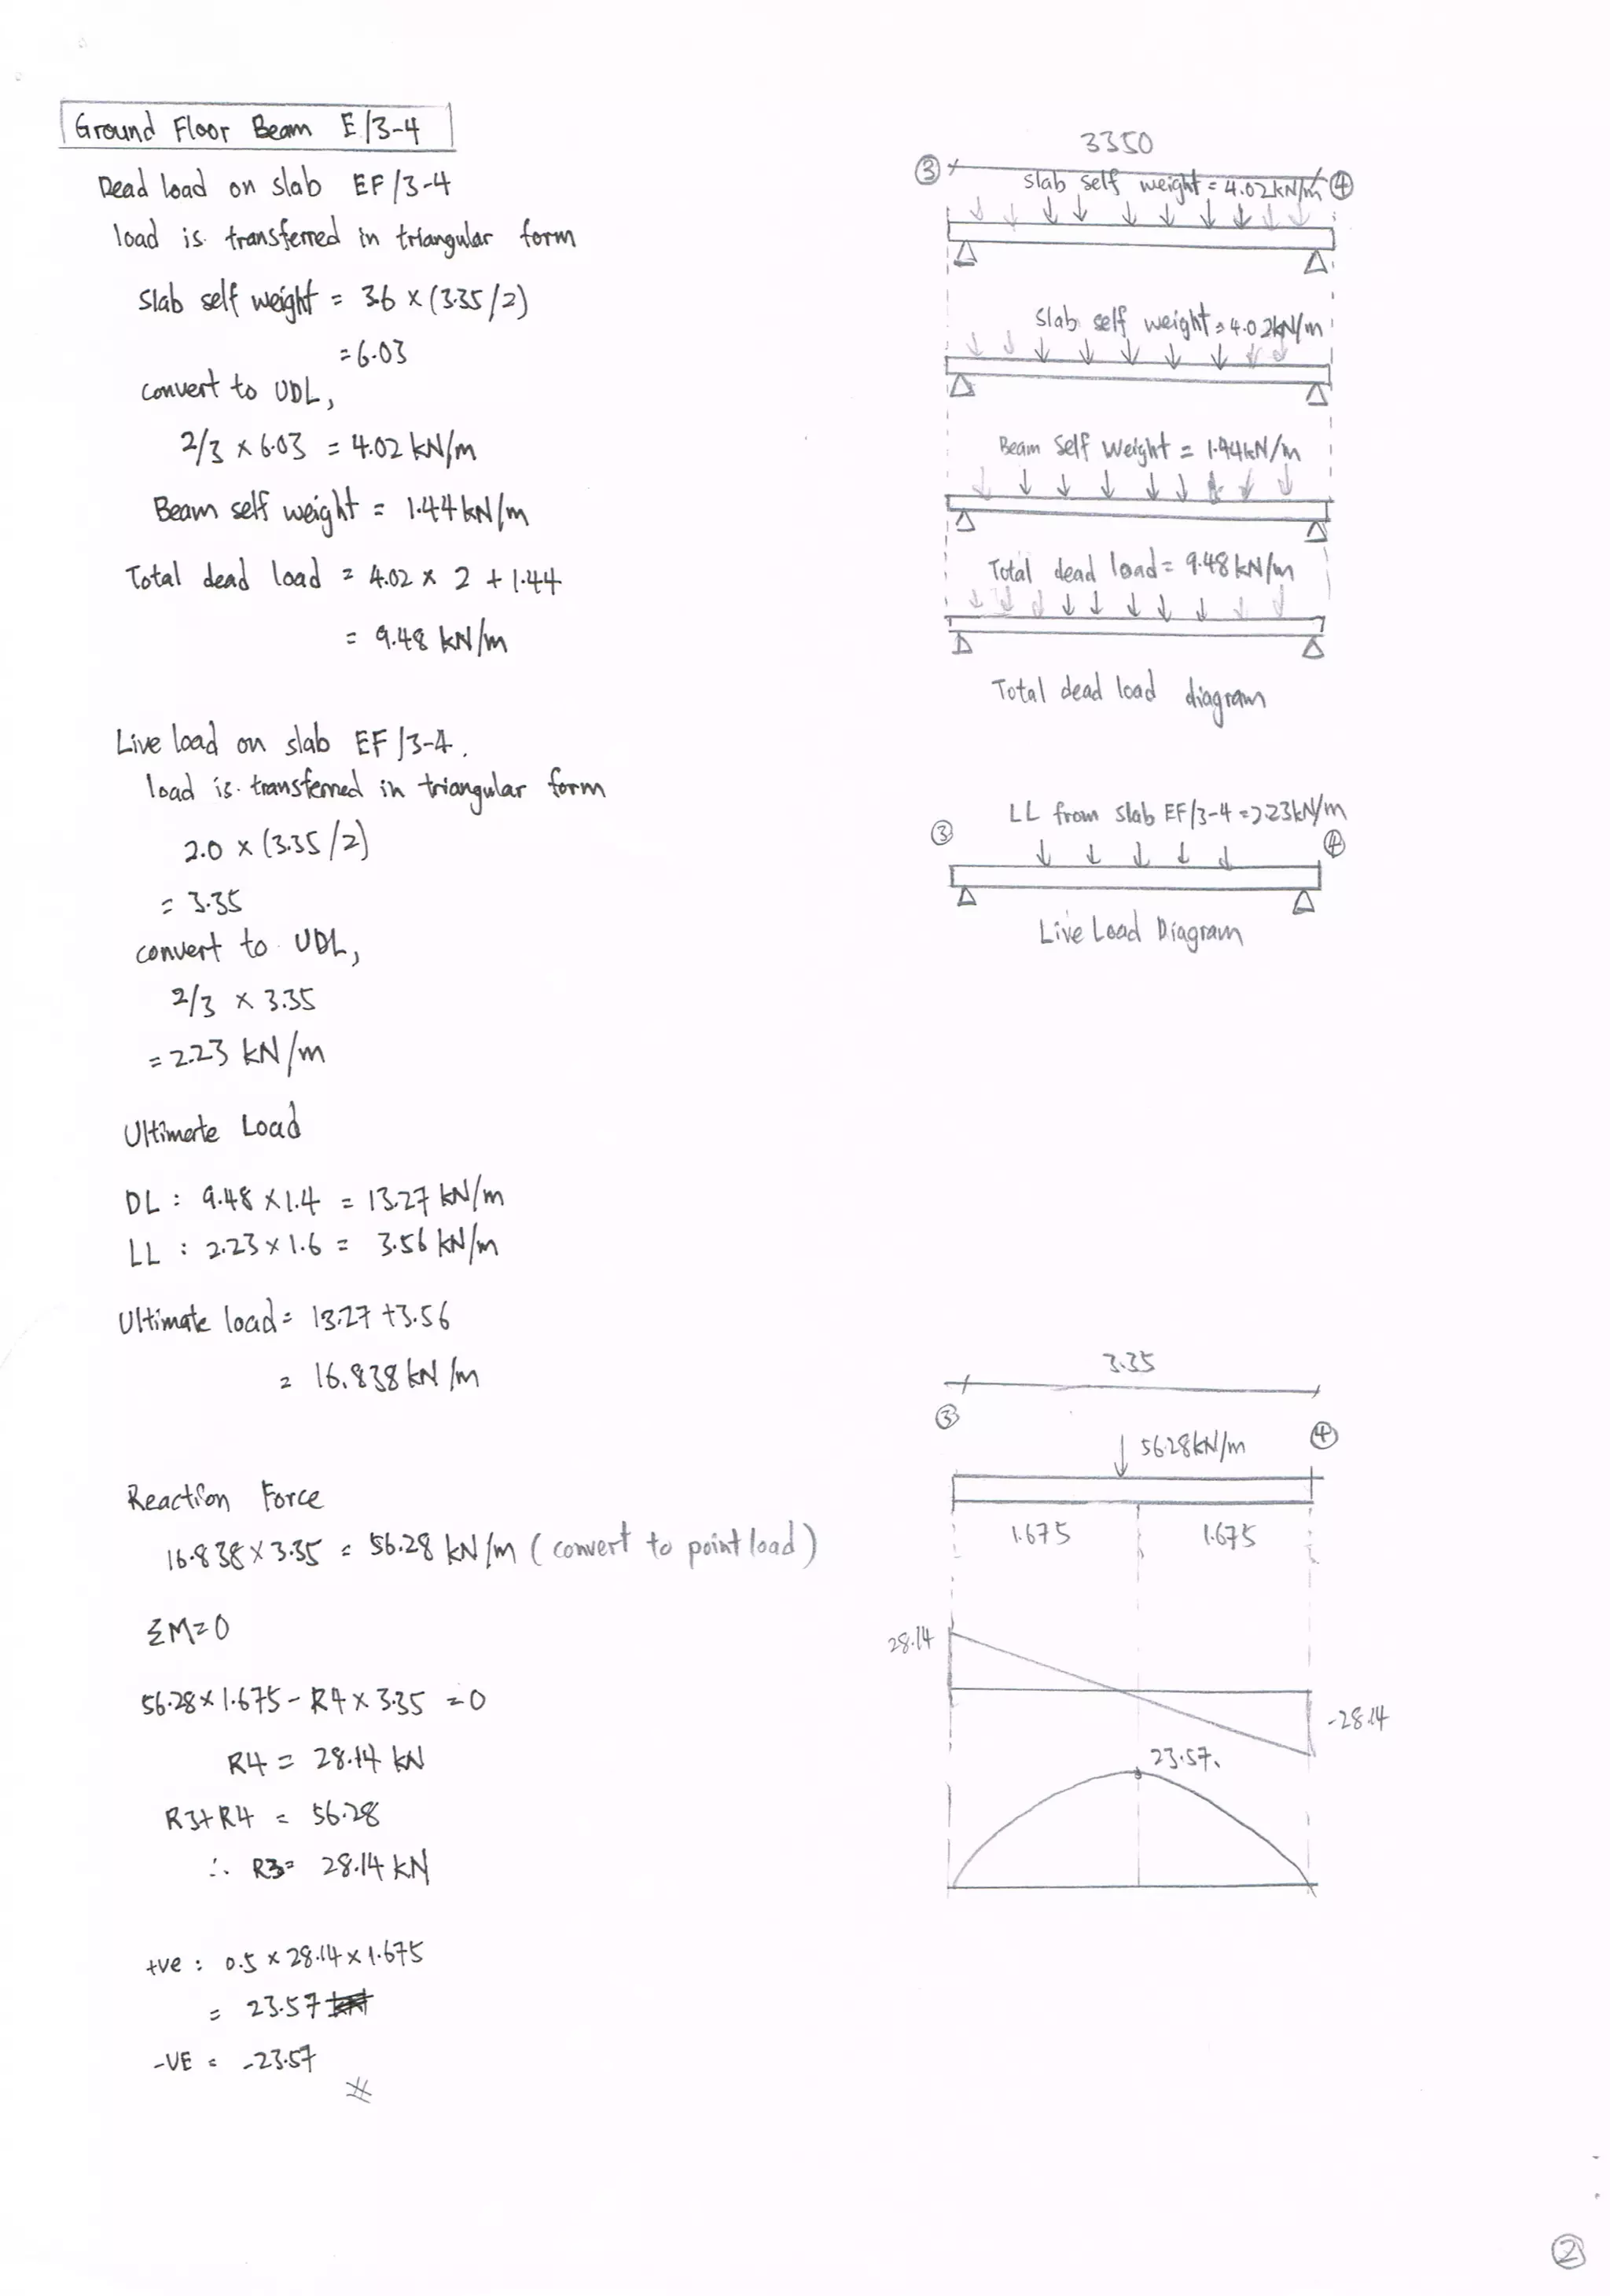 Ground Floor Beam E/3-4
Dead load on slab EF/3-4
load is transferred in triangular form
slab self weight = 3.6 x (3.35/2)
= 6.03
convert to UDL,
2/3 x 6.03 = 4.02 kN/m
Beam self weight = 1.44kN/m
Total dead load = 4.02 x 2 + 1.44
= 9.48 kN/m
Live load on slab EF/3-4.
load is transferred in triangular form
2.0 x (3.35/2)
= 3.35
convert to UDL,
2/3 x 3.35
= 2.23 kN/m
Ultimate Load
DL : 9.48 x 1.4 = 13.27 kN/m
LL : 2.23 x 1.6 = 3.56 kN/m
Ultimate load = 13.27 + 3.56
= 16.838 kN/m
Reaction Force
16.838 x 3.35 = 56.28 kN/m (convert to point load)
ΣM=0
56.28 x 1.675 - R4 x 3.35 = 0
R4 = 28.14 kN
R3+R4 = 56.28
∴ R3= 28.14 kN
+ve : 0.5 x 28.14 x 1.675
= 23.57
-VE = -23.57
3350
③ ④
slab self weight = 4.02kN/m
slab self weight = 4.02kN/m
Beam self weight = 1.44kN/m
Total dead load = 9.48 kN/m
Total dead load diagram
LL from slab EF/3-4 = 2.23kN/m
③ ④
Live Load Diagram
3.35
③ ④
56.28kN/m
1.675 1.675
28.14
-28.14
23.57.
②